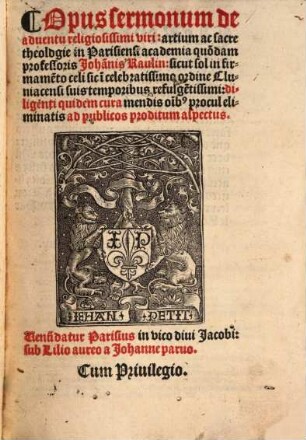 Opus sermonum de
aduentu religiosissimi viri: artium ac sacre
theologie in Parisiensi academia quōdam
professoris Johānis Raulin: sicut sol in fir-
mamēto celi sic ī celebratissimo ordine Clu-
niacensi suis temporibus refulgētissimi: di-
ligēnti quidem cura mendis oībꝰ procul eli-
minatis ad publicos proditum aspectus.
I P
IEHAN PETIT
Uenūdatur Parisius in vico diui Jacobi:
sub Lilio aureo a Johanne paruo.
Cum Priuilegio.